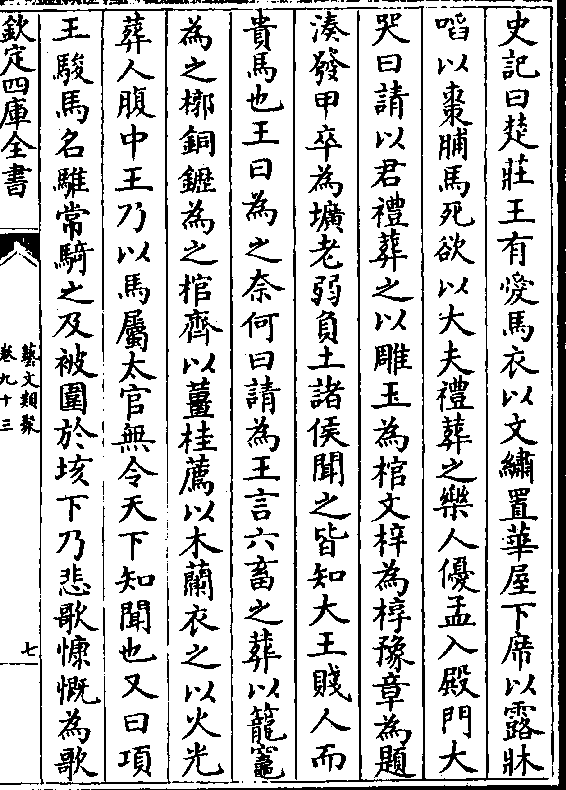 史記曰楚莊王有愛馬衣以文繡置華屋下席以露牀
啗以棗脯馬死欲以大夫禮葬之樂人優孟入殿門大
哭曰請以君禮葬之以雕玉為棺文梓為椁豫章為題
湊發甲卒為壙老弱負土諸侯聞之皆知大王賤人而
貴馬也王曰為之奈何曰請為王言六畜之葬以籠竈
為之槨銅鑩為之棺齊以薑桂薦以木蘭衣之以火光
葬人腹中王乃以馬屬太官無令天下知聞也又曰項
王駿馬名騅常騎之及被圍於垓下乃悲歌慷慨為歌
欽定四庫全書
藝文類聚
卷九十三
七